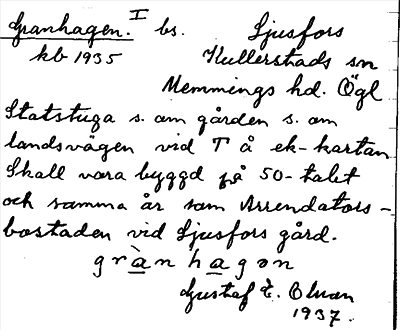 Granhagen. I bs. Ljusfors
kb 1935 Kullerstads sn
Memmings hd. Ögl
Statstuga s. om gården s. om
landsvägen vid T å ek-kartan
Skall vara byggd på 50-talet
och samma år som Arrendators-
bostaden vid Ljusfors gård.
grànhagən
Gustaf E. Olsson
1937.